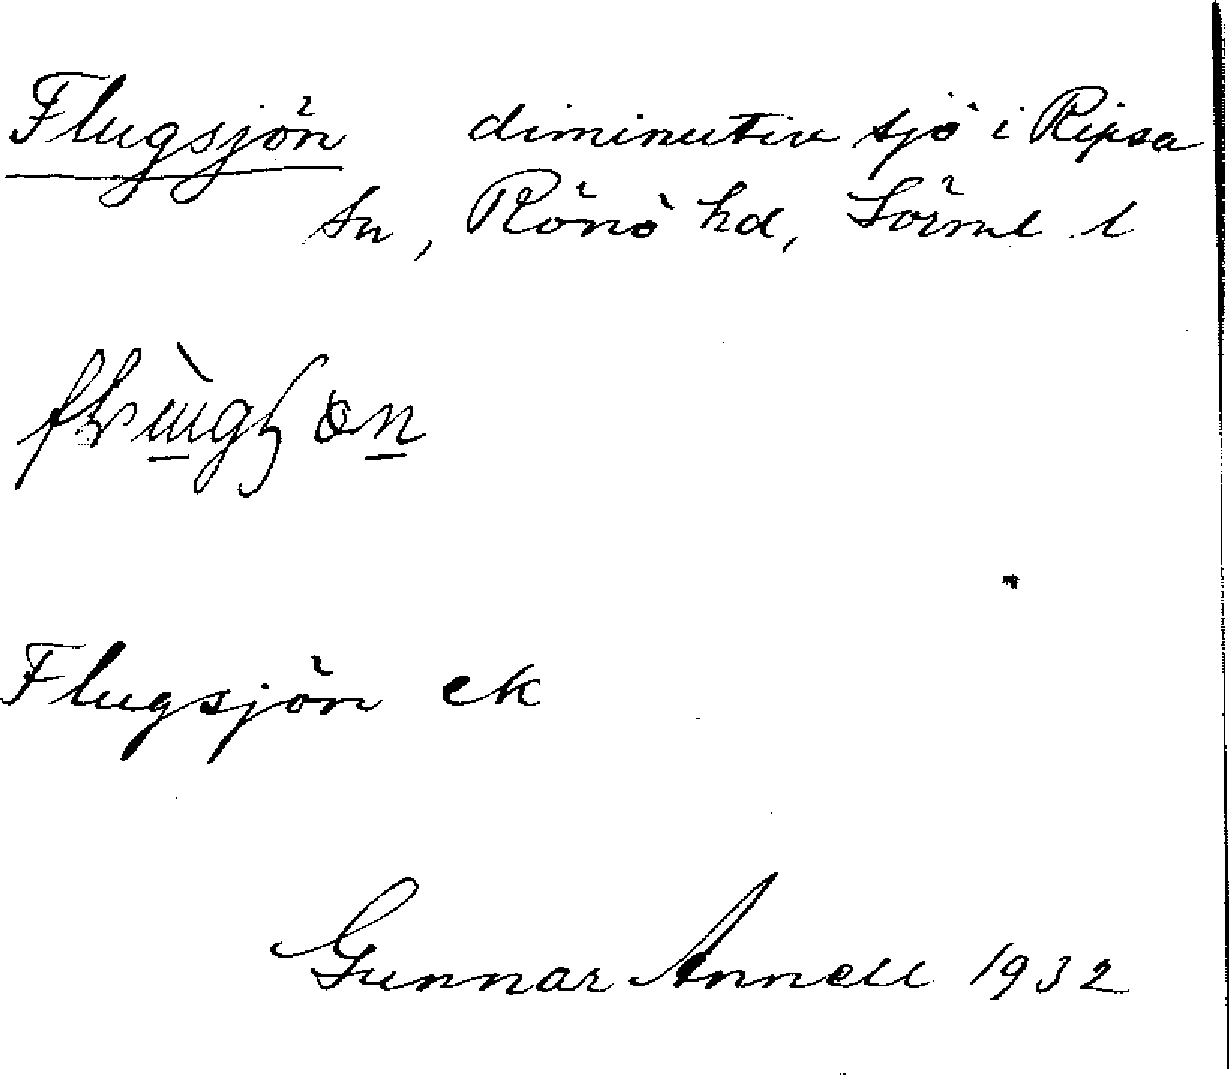 Flugsjön diminutiv sjö i Ripsa
sn, Rönö hd, Sörml l
Flugsjön ek
Gunnar Annell 1932